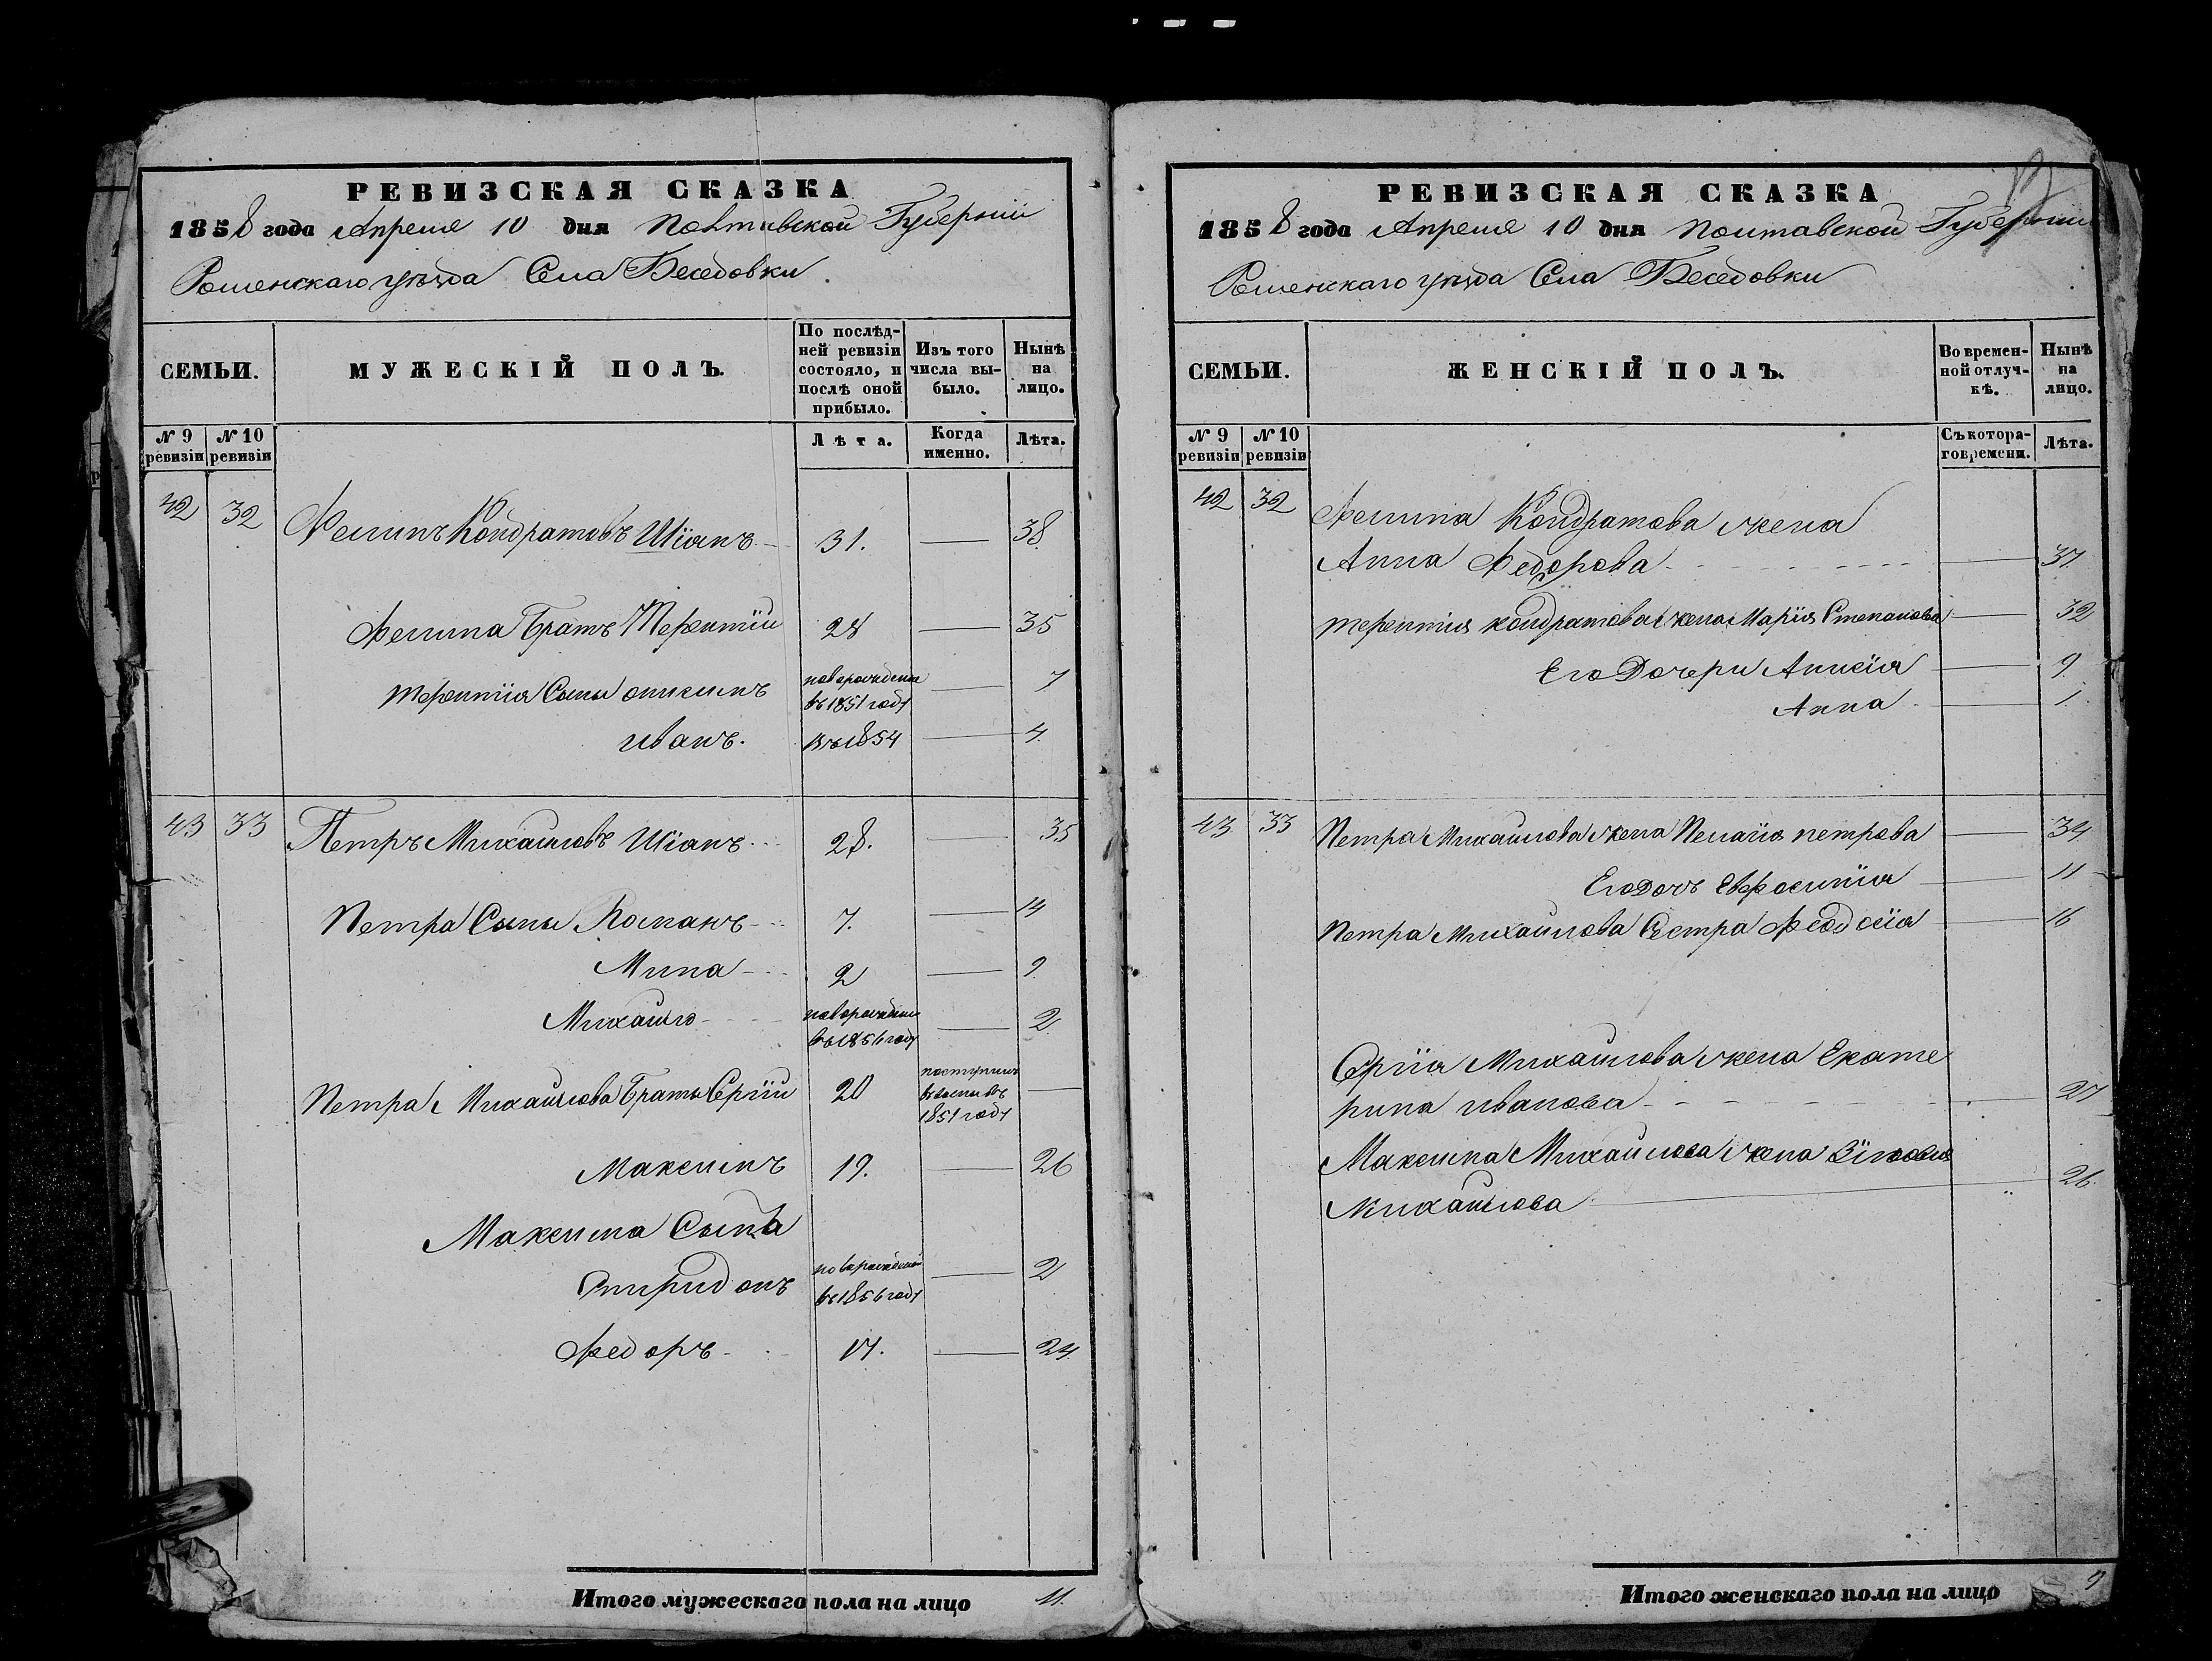 РЕВИЗСКАЯ СКАЗКА
1858 года Апреля 10 дня Полтавской Губернии
Роменскаго уѣзда Села Беседовки
СЕМЬИ.
МУЖЕСКІЙ ПОЛЪ.
По послѣд-
ней ревизіи
состояло, и
послѣ оной
прибыло.
Изъ того
числа вы-
было.
Нынѣ
на
лицо.
№ 9 ревизіи
№ 10 ревизіи
Лѣта.
Когда именно.
Лѣта.
42 32 Филипъ Кондратовъ Шіянъ 31. — 38
Филипа Братъ Терентій 28 — 35
Терентія Сыны новорожденъ — 7
въ 1851 году
иванъ. Въ 1854 — 4
43 33 Петръ Михайловъ Шіянъ 28. — 35
Петра Сыны Романъ 7. — 14
Мина 2 — 9
Михайло новорожденъ — 2
въ 1856 году
Петра Михайлова Братья Сергій 20 поступилъ —
1851 году
Максимъ 19. — 26
Максима Сынъ
Спиридонъ новорожденъ — 2
въ 1856 году
Федоръ 17. — 24
Итого мужескаго пола на лицо 11.
РЕВИЗСКАЯ СКАЗКА
1858 года Апреля 10 дня Полтавской Губернии
Роменскаго уѣзда Села Беседовки
СЕМЬИ.
ЖЕНСКІЙ ПОЛЪ.
Во времен-
ной отлуч-
кѣ.
Нынѣ
на
лицо.
№ 9 ревизіи
№ 10 ревизіи
Съ котора-
го времени.
Лѣта.
42 32 Филипа Кондратова жена
Анна Федорова — 37
Терентія Кондратова жена Марія Степанова — 32
Его Дочери — 9
Анна — 1
43 33 Петра Михайлова жена Пелагія петрова — 34
Его Дочь Евфросинія — 11
Петра Михайлова Сестра Феодосія — 16
Сергія Михайлова жена Екате
рина иванова — 27
Максима Михайлова жена Зіновія
Михайлова — 26
Итого женскаго пола на лицо 9